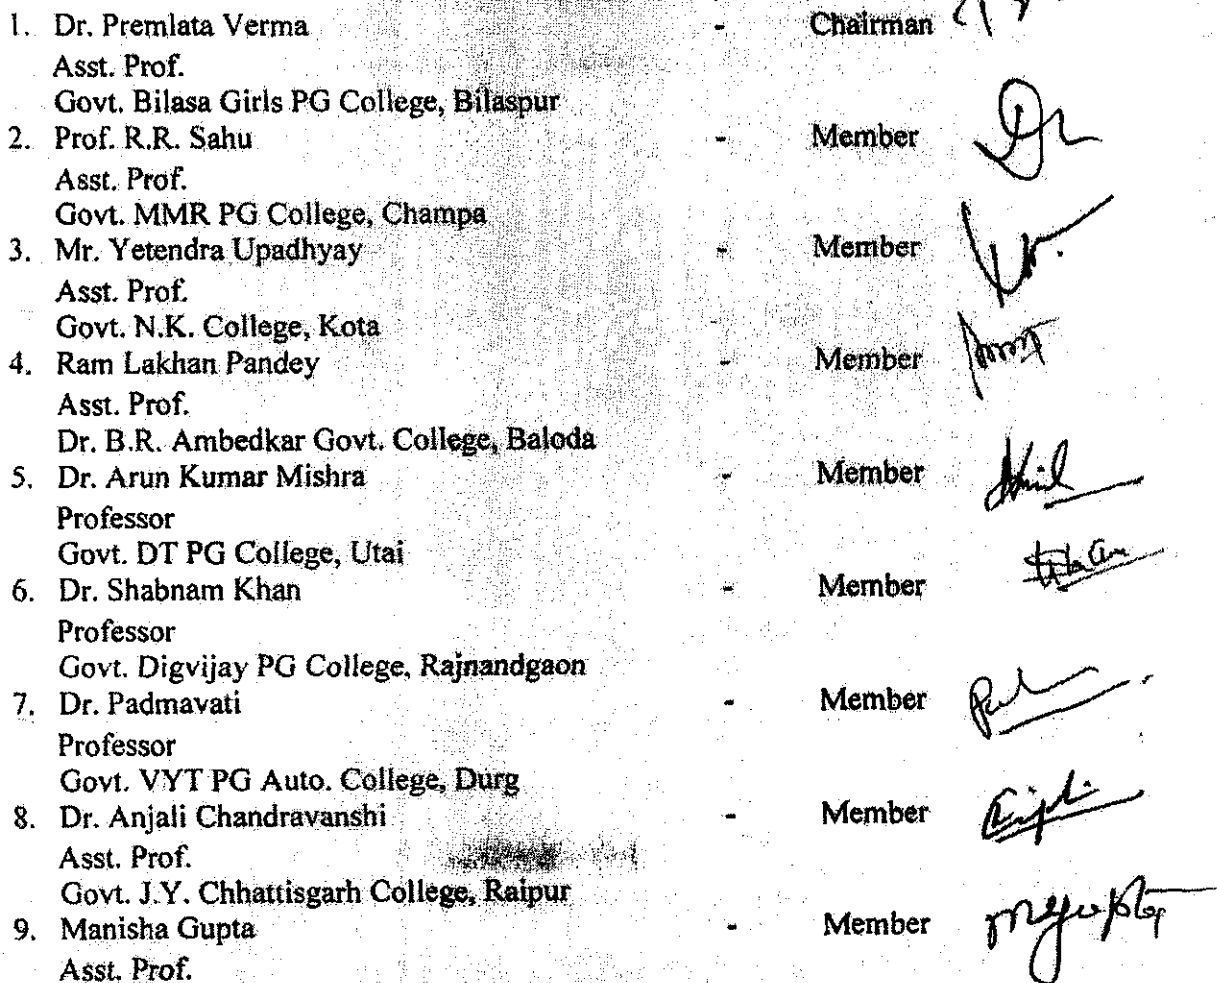 1. Dr. Premlata Verma - Chairman
Asst. Prof.
Govt. Bilasa Girls PG College, Bilaspur
2. Prof. R.R. Sahu - Member
Asst. Prof.
Govt. MMR PG College, Champa
3. Mr. Yetendra Upadhyay - Member
Asst. Prof.
Govt. N.K. College, Kota
4. Ram Lakhan Pandey - Member
Asst. Prof.
Dr. B.R. Ambedkar Govt. College, Baloda
5. Dr. Arun Kumar Mishra - Member
Professor
Govt. DT PG College, Utai
6. Dr. Shabnam Khan - Member
Professor
Govt. Digvijay PG College, Rajnandgaon
7. Dr. Padmavati - Member
Professor
Govt. VYT PG Auto. College, Durg
8. Dr. Anjali Chandravanshi - Member
Asst. Prof.
Govt. J.Y. Chhattisgarh College, Raipur
9. Manisha Gupta - Member
Asst. Prof.